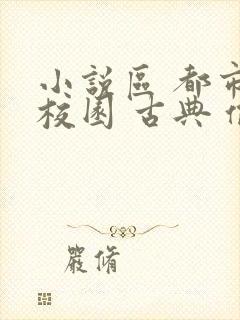 小說區 都市
校園 古典
嚴脩